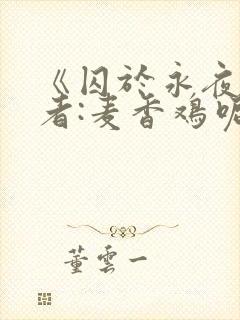 《囚於永夜
者:麦香鸡呢
董雲一